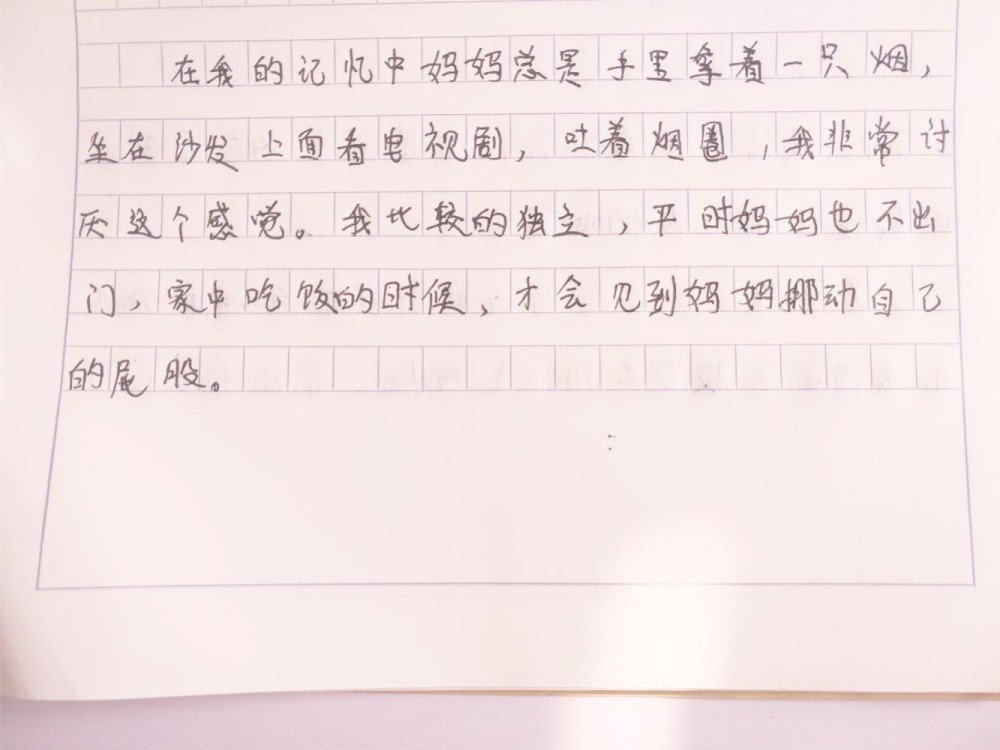 在我的记忆中妈妈总是手里拿着一只烟，
坐在沙发上面看电视剧，吐着烟圈，我非常讨
厌这个感觉。我比较的独立，平时妈妈也不出
门，家中吃饭的时候，才会见到妈妈挪动自己
的尾股。